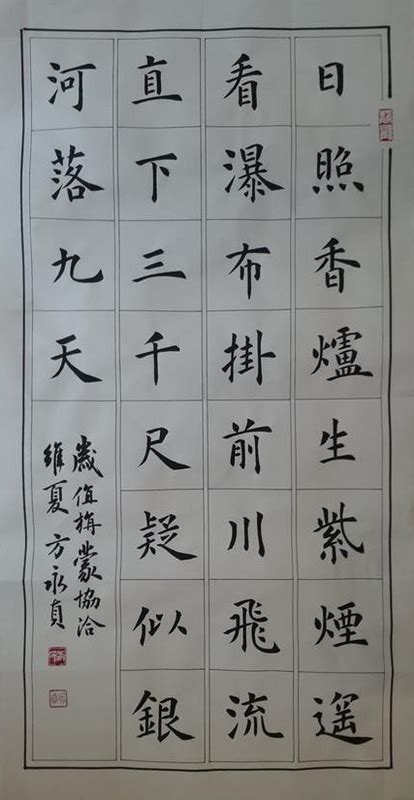 日照香爐生紫煙遥
看瀑布掛前川飛流
直下三千尺疑似銀
河落九天
歲值旃蒙協洽
維夏方永貞